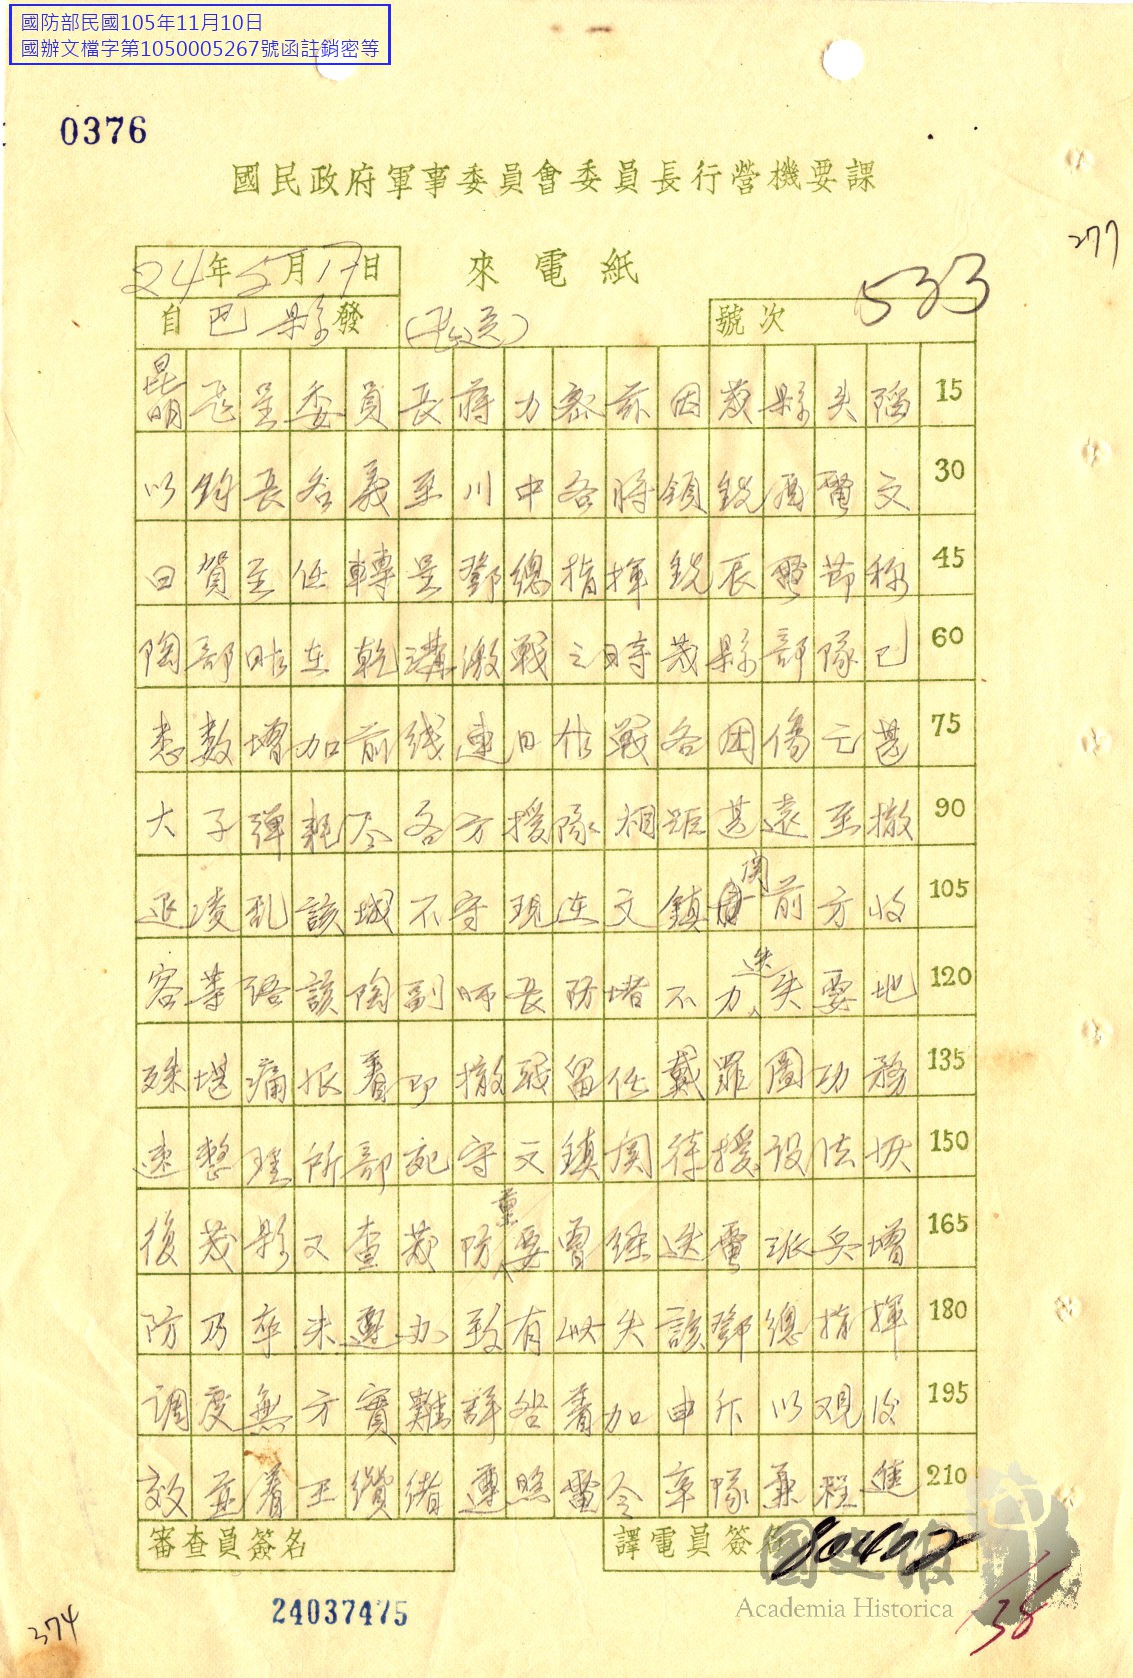 國防部民國105年11月10日
國辦文檔字第1050005267號函註銷密等
0376
國民政府軍事委員會委員長行營機要課
277
24年5月17日
來電紙
自巴縣發
號次
533
昆明 呈委員長蔣力密茲因茂縣失陷 15
以鈞長名義至川中各將領銑酉電文 30
曰賀主任轉呈鄧總指揮銑辰電節稱 45
陶部昨在乾溝激戰之時茂縣部隊已 60
悉數增加前綫連日作戰各因傷亡甚 75
大子彈耗盡各方援隊相距甚遠至撤 90
退凌亂該城不守現在文鎮關前方收 105
容等語該陶副師長防堵不力迭失要地 120
殊堪痛恨著即撤職留任戴罪圖功務 135
速整理所部死守文鎮關待援設法恢 150
復茂縣又查茂防重要曾經迭電派兵增 165
防乃卒未遵办致有此失該鄧總指揮 180
調度無方實難辞咎着加申斥以观后 195
效並着王纘緒遵照電令率隊兼程進 210
審查員簽名
譯電員簽名
80402
24037475
國史館
Academia Historica
374
38